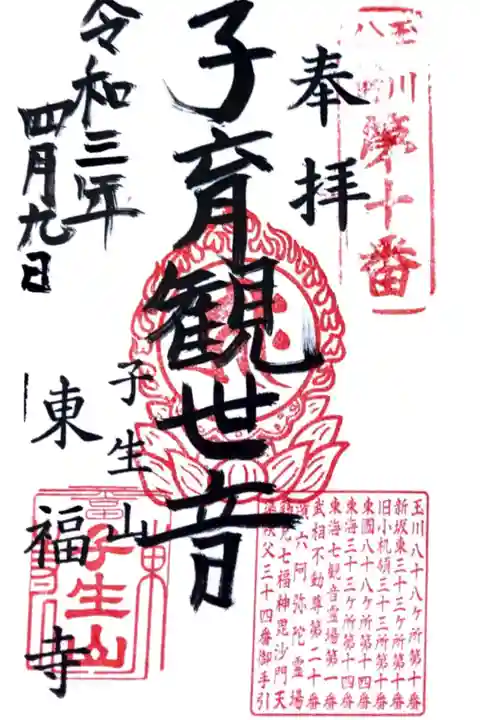 奉拝
玉川八十八ヶ所
第十番
子育観世音
子生山
東福寺
令和三年
四月九日
子生山
玉川八十八ヶ所第十番
新坂東三十三ヶ所第十番
旧小机領三十三所第十番
東國八十八ヶ所第十四番
東海三十三ヶ所第十四番
東海七観音霊場第一番
武相不動尊第二十番
六阿弥陀霊場
七福神毘沙門天
秩父三十四番御手引